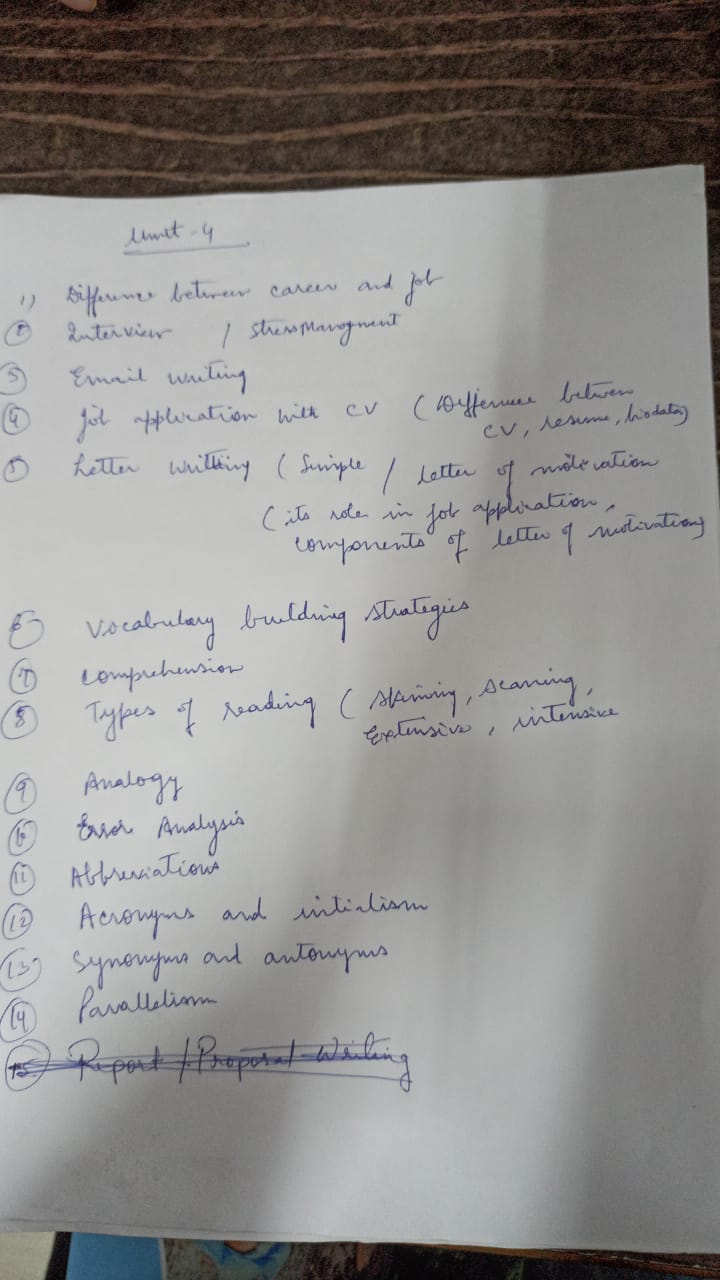 Unit - 4
1) Difference between career and job
2 Interview / Stress Managment
3 Email writing
4 job application with CV ( Difference between
CV, resume, biodata)
5 Letter writing ( Simple / letter of motivation
( its role in job application,
components of letter of motivation)
6 Vocabulary building strategies
7 Comprehension
8 Types of reading ( skimming, scanning,
Extensive, intensive
9 Analogy
10 Error Analysis
11 Abbreviations
12 Acronyms and initialism
13 Synonyms and antonyms
14 Parallelism
15 Report / Proposal Writing